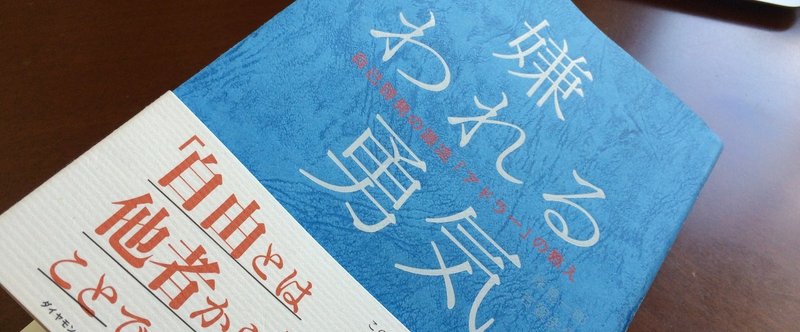 嫌
われる
勇気
自己啓発の源流「アドラー」の教え
「自由とは
他者か
ことで
ダイヤモン
この